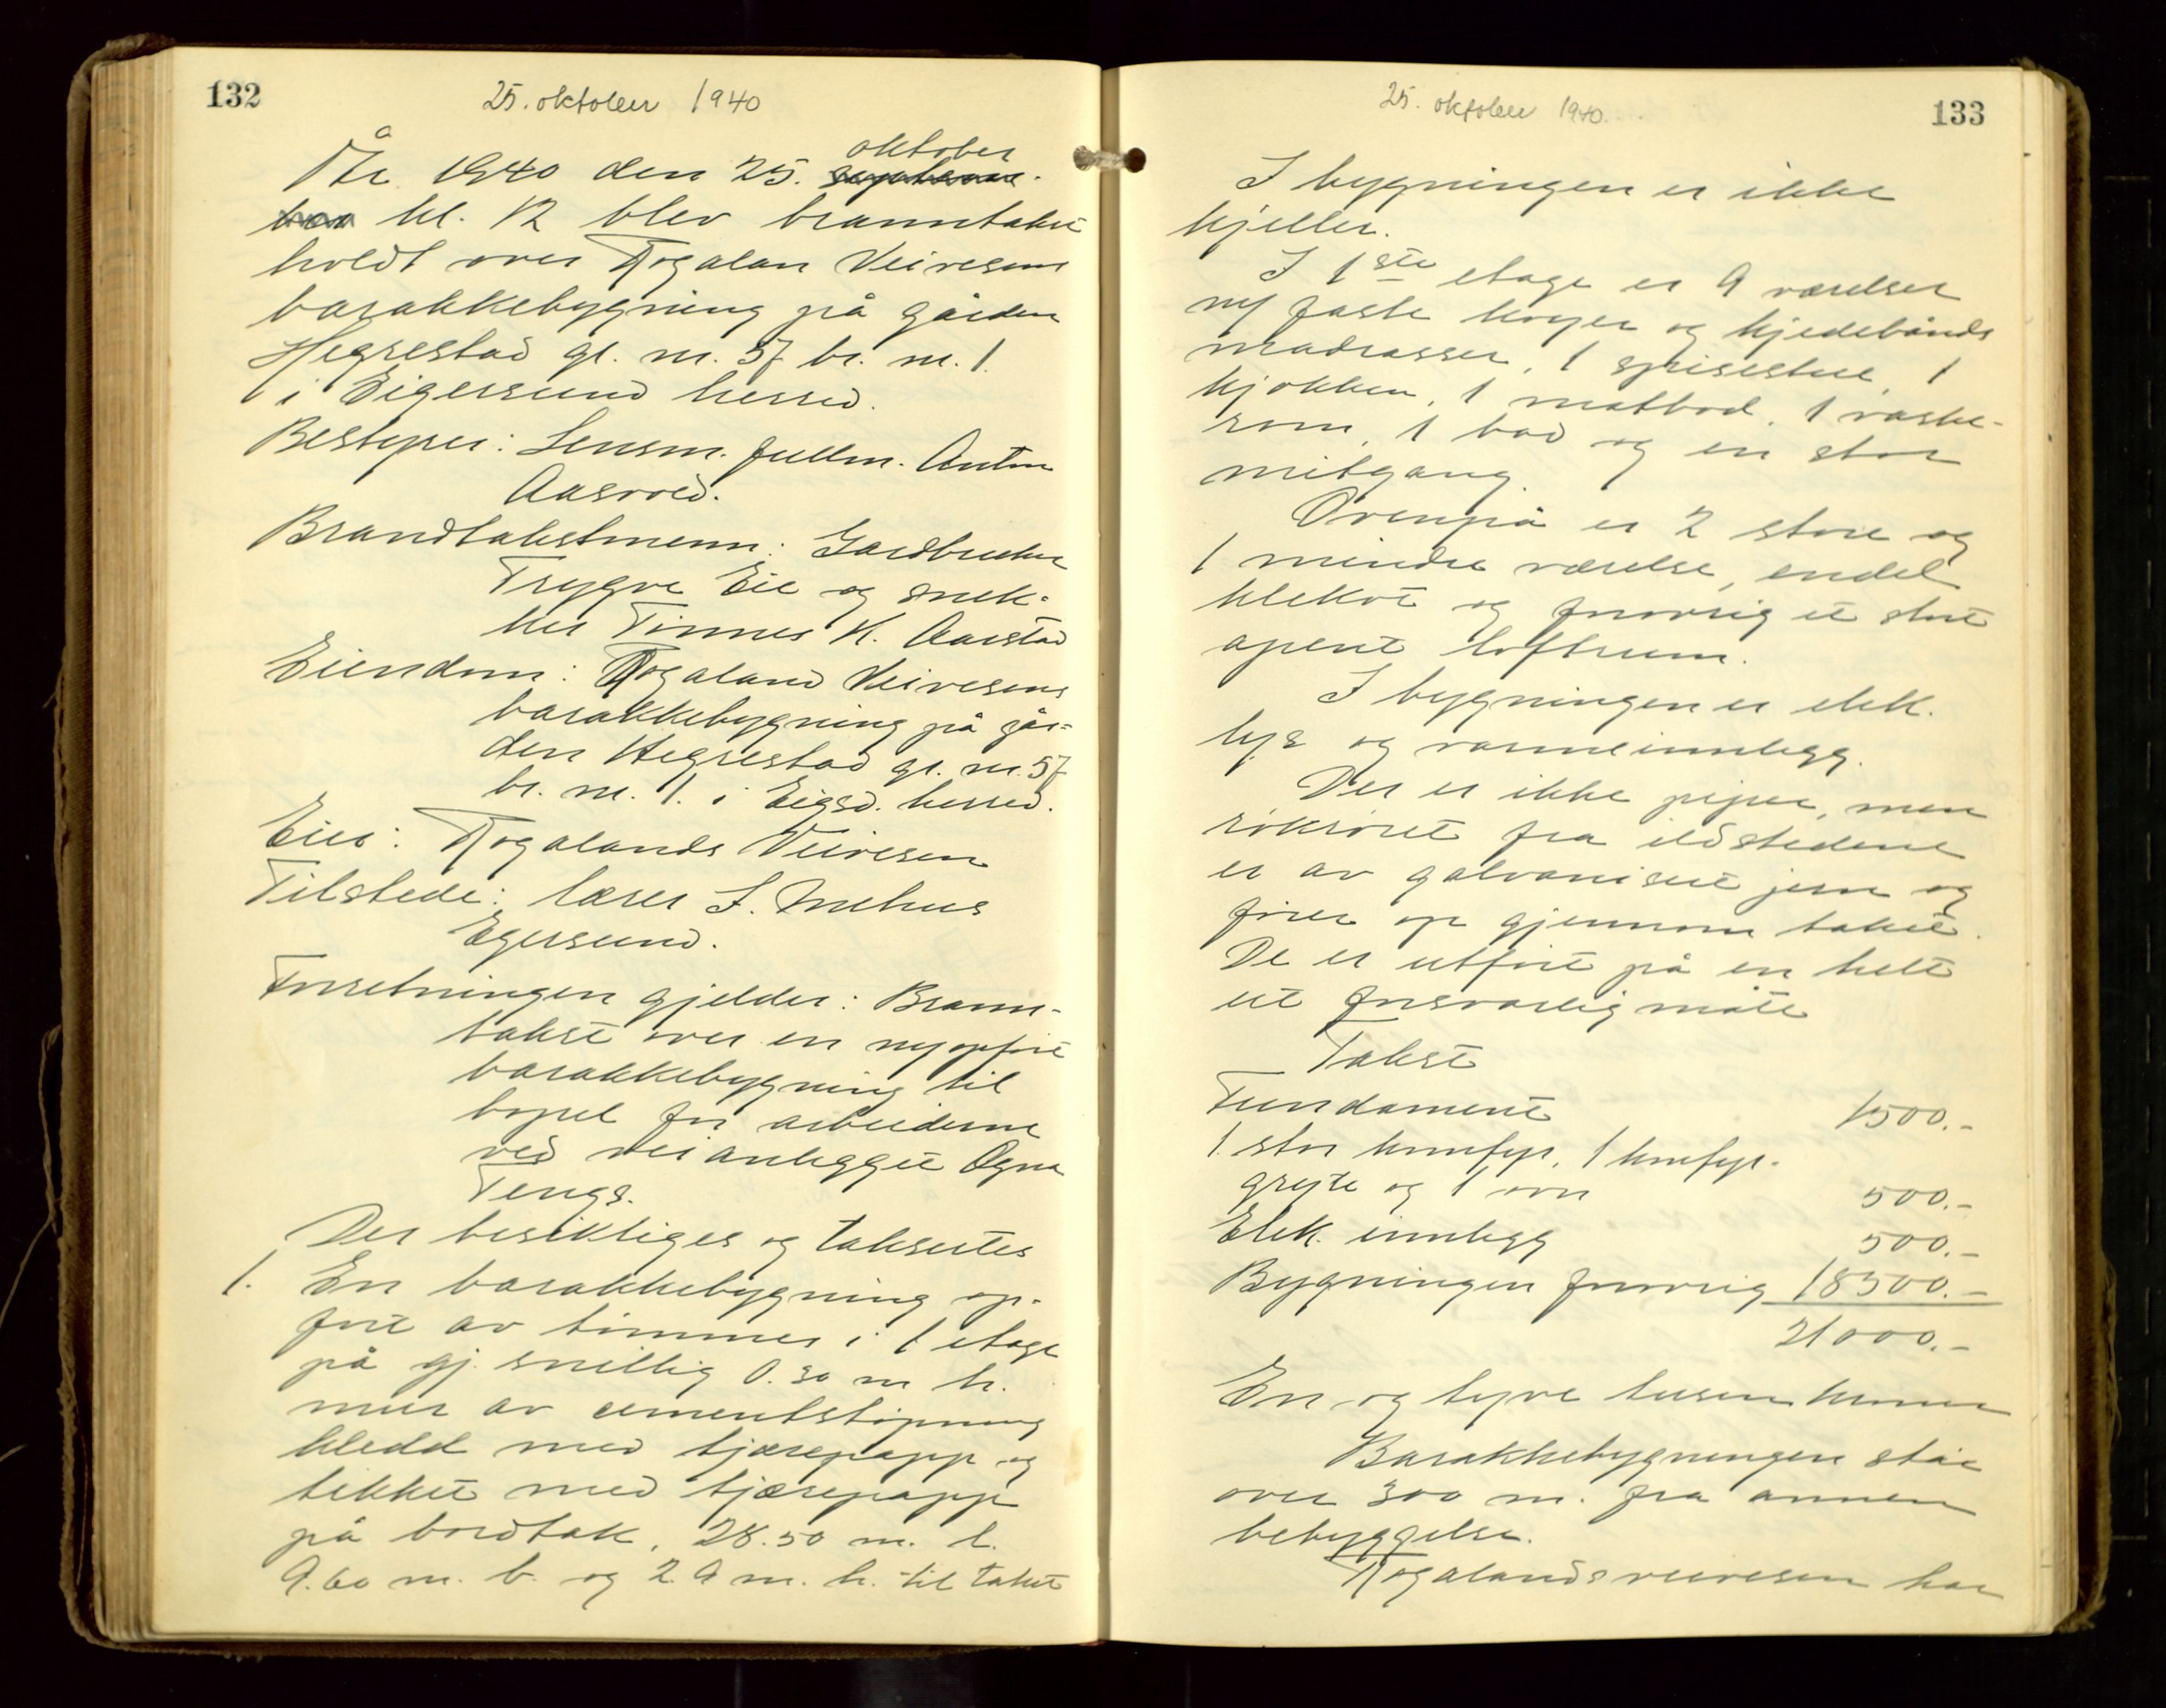 132
25. oktober 1940
År 1940 den 25. oktober
kl. 12 blev branntakst
holdt over Rogalan Veivesens
barakkebygning på gården
Hegrestad gr. nr. 57 br. nr. 1.
i Eigersund herred.
Bestyrer: Lensm. fullm. Anton
Aasvold.
Brandtakstmenn: Gardbruker
Trygve Eie og snek-
ker Tinnes K. Aarstad
Eiendom: Rogaland Veivesens
barakkebygning på går-
den Hegrestad gr. nr. 57
br. nr. 1. i Eigsd. herred.
Eier: Rogalands Veivesen
Tilstede: lærer S. Mehus
Egersund.
Forretningen gjelder: Brann-
takst over en ny opført
barakkebygning til
bopel for arbeiderne
ved veianlegget Ogna
Tengs.
Der besiktiges og takseites
1. En barakkebygning op-
ført av timmer i 1 etage
på gj. snittlig 0.30 m h.
mur av cementstøpning
kledd med tjærepapp og
tekket med tjærepapp
på bordtak, 28.50 m. l.
9.60 m. b. og 2.9 m. h. til taket
133
25. oktober 1940.
I bygningen er ikke
kjeller.
I 1ste etage er 9 værelser
m/ faste køyer og kjedebånds
madrasser, 1 spisestue, 1
kjøkken, 1 matbod, 1 vaske-
rom, 1 bad og en stor
mitgang.
Ovenpå er 2 store og
1 mindre værelse, endel
klekot og forøvrig et stort
åpent loftrum.
I bygningen er elek.
lys og varmeinnlegg.
Der er ikke piper, men
røkrøret fra ildstedene
er av galvanisert jern og
fører op gjennom taket.
De er utført på en helt
ut forsvarlig måte
Takst
Fundament 1500.-
1 stor komfyr, 1 komfyr-
gryte og 1 ovn 500.-
Elek. innlegg 500.-
Bygningen forøvrig 18500.-
21000.-
En og tyve tusen kroner
Barakkebygningen står
over 300 m. fra annen
bebyggelse.
Rogalands veivesen har